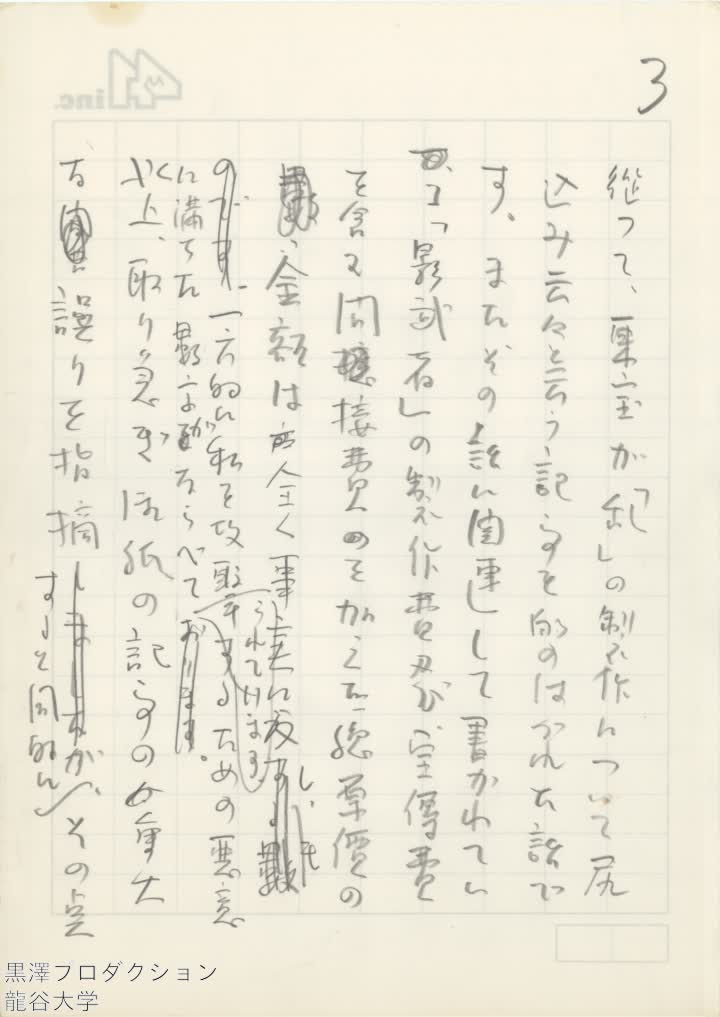 3
従って、東宝が「乱」の製作について尻
込み云々と云う記事も的のはづれた話で
す。またその話に関連して書かれてい
る、「影武者」の製作費及び宣傳費
を含む間接費のを加えた総原價の
金額は全く事実に反し、も
のです。一方的に私を攻撃するための悪意
に満ちた数字がならべて
られています
おります。
以上、取り急ぎ御紙の記事の重大
な誤りを指摘しましたが、その点
すると同時に
inc.
黒澤プロダクション
龍谷大学